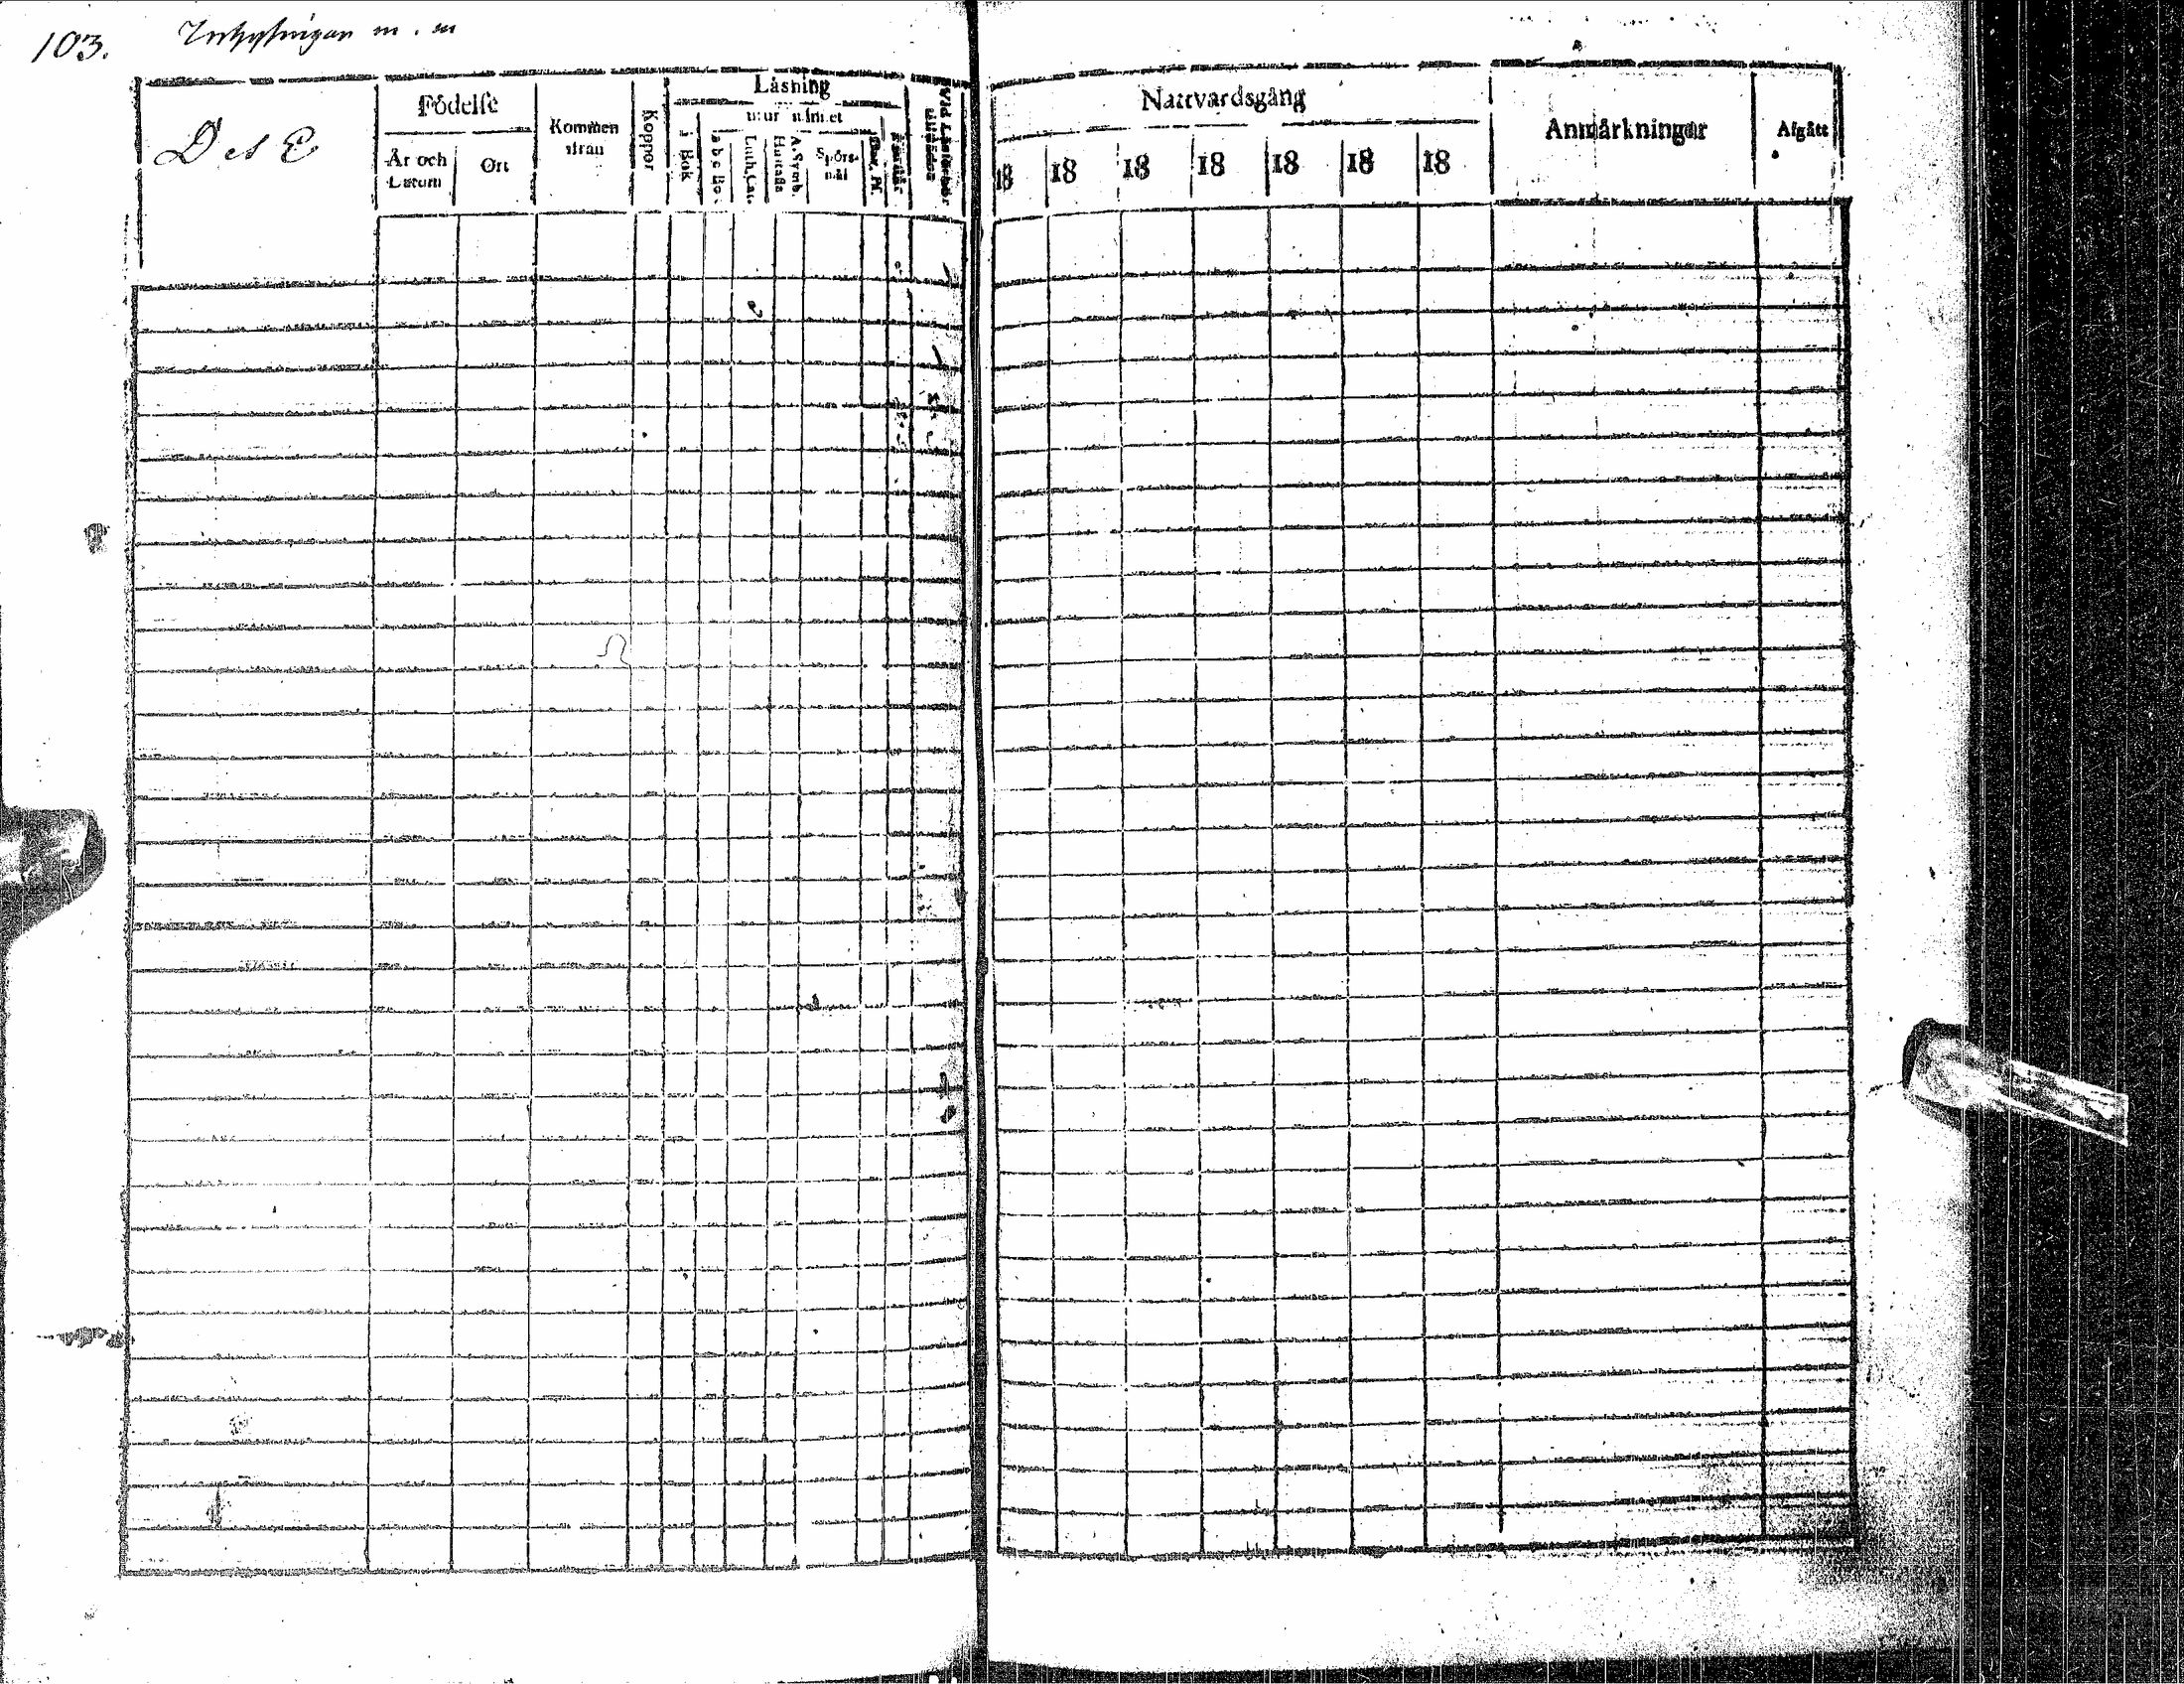 103. Inhysingar m. m
D et E
Födelse
År och Datum
Ort
Kommen ifran
Koppor
Läsning
i Bok
utur minnet
a b c Bo.
Luth. Cat.
Hustafla
A. Symb.
Spörsmål
Dav. Ps.
Förstår
Vid Läsförhör
Nattvardsgång
18 18 18 18 18 18 18
Anmärkningar
Afgått